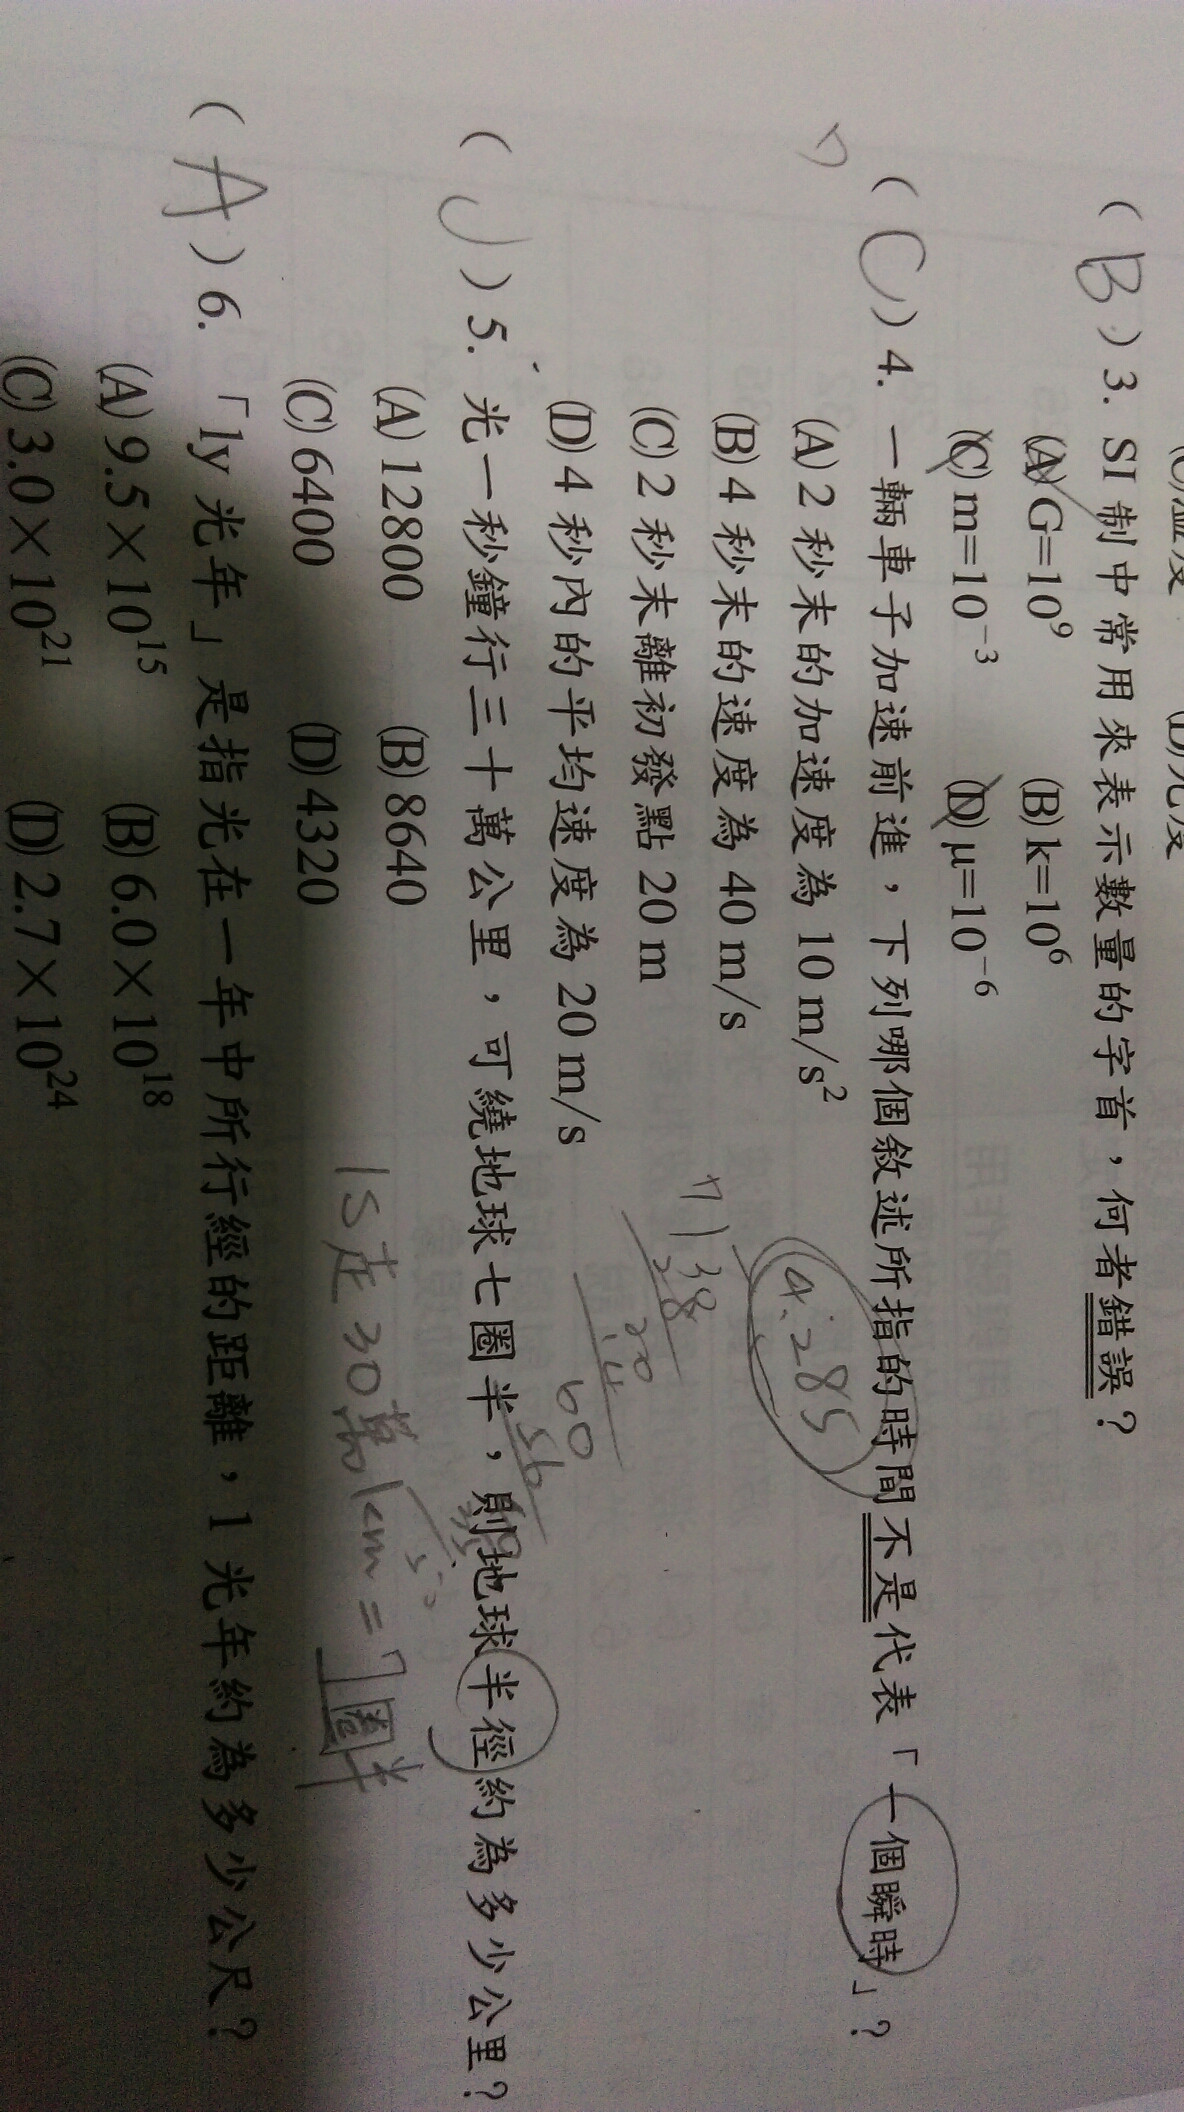 (D)光度
( B ) 3. SI 制中常用來表示數量的字首，何者錯誤？
(A) G=10⁹ (B) k=10⁶
(C) m=10⁻³ (D) μ=10⁻⁶
( C ) 4. 一輛車子加速前進，下列哪個敘述所指的時間不是代表「一個瞬時」？
(A) 2 秒末的加速度為 10 m/s²
(B) 4 秒末的速度為 40 m/s
(C) 2 秒末離初發點 20 m
(D) 4 秒內的平均速度為 20 m/s
4.285
7 30
28
20
14
60
56
( ) 5. 光一秒鐘行三十萬公里，可繞地球七圈半，則地球半徑約為多少公里？
(A) 12800 (B) 8640
(C) 6400 (D) 4320
1S走30萬km=7圈半
( A ) 6. 「ly 光年」是指光在一年中所行經的距離，1 光年約為多少公尺？
(A) 9.5×10¹⁵ (B) 6.0×10¹⁸
(C) 3.0×10²¹ (D) 2.7×10²⁴